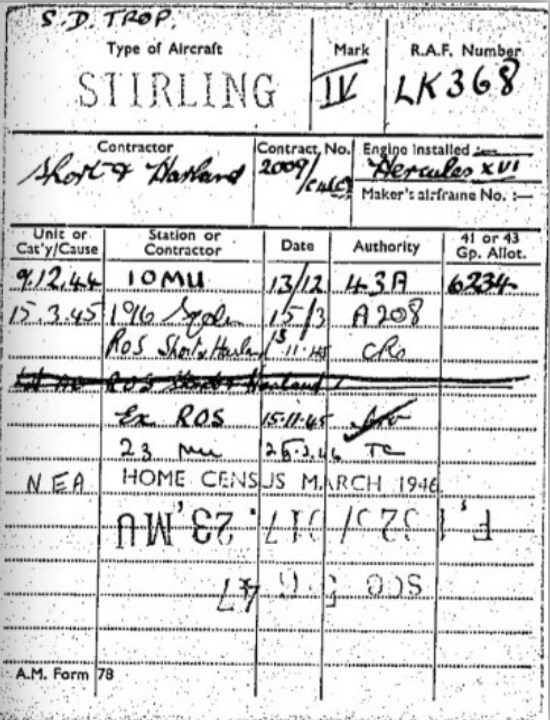 S.D. TROP.
Type of Aircraft Mark R.A.F. Number
STIRLING IV LK368
Contractor Contract, No. Engine Installed :—
Short & Harland 2009/C4(C) Hercules XVI
Maker's airframe No. :—
Unit or Cat'y/Cause Station or Contractor Date Authority 41 or 43 Gp. Allot.
9.12.44 10MU 13/12 43A 6234
15.3.45 196 Sqdn 15/3 A208
ROS Short & Harland 11.45 CRO
ROS Short & Harland
Ex ROS 15.11.45
23 MU 25.3.46 TC
NEA HOME CENSUS MARCH 1946
23.MU
SCO
47
A.M. Form 78